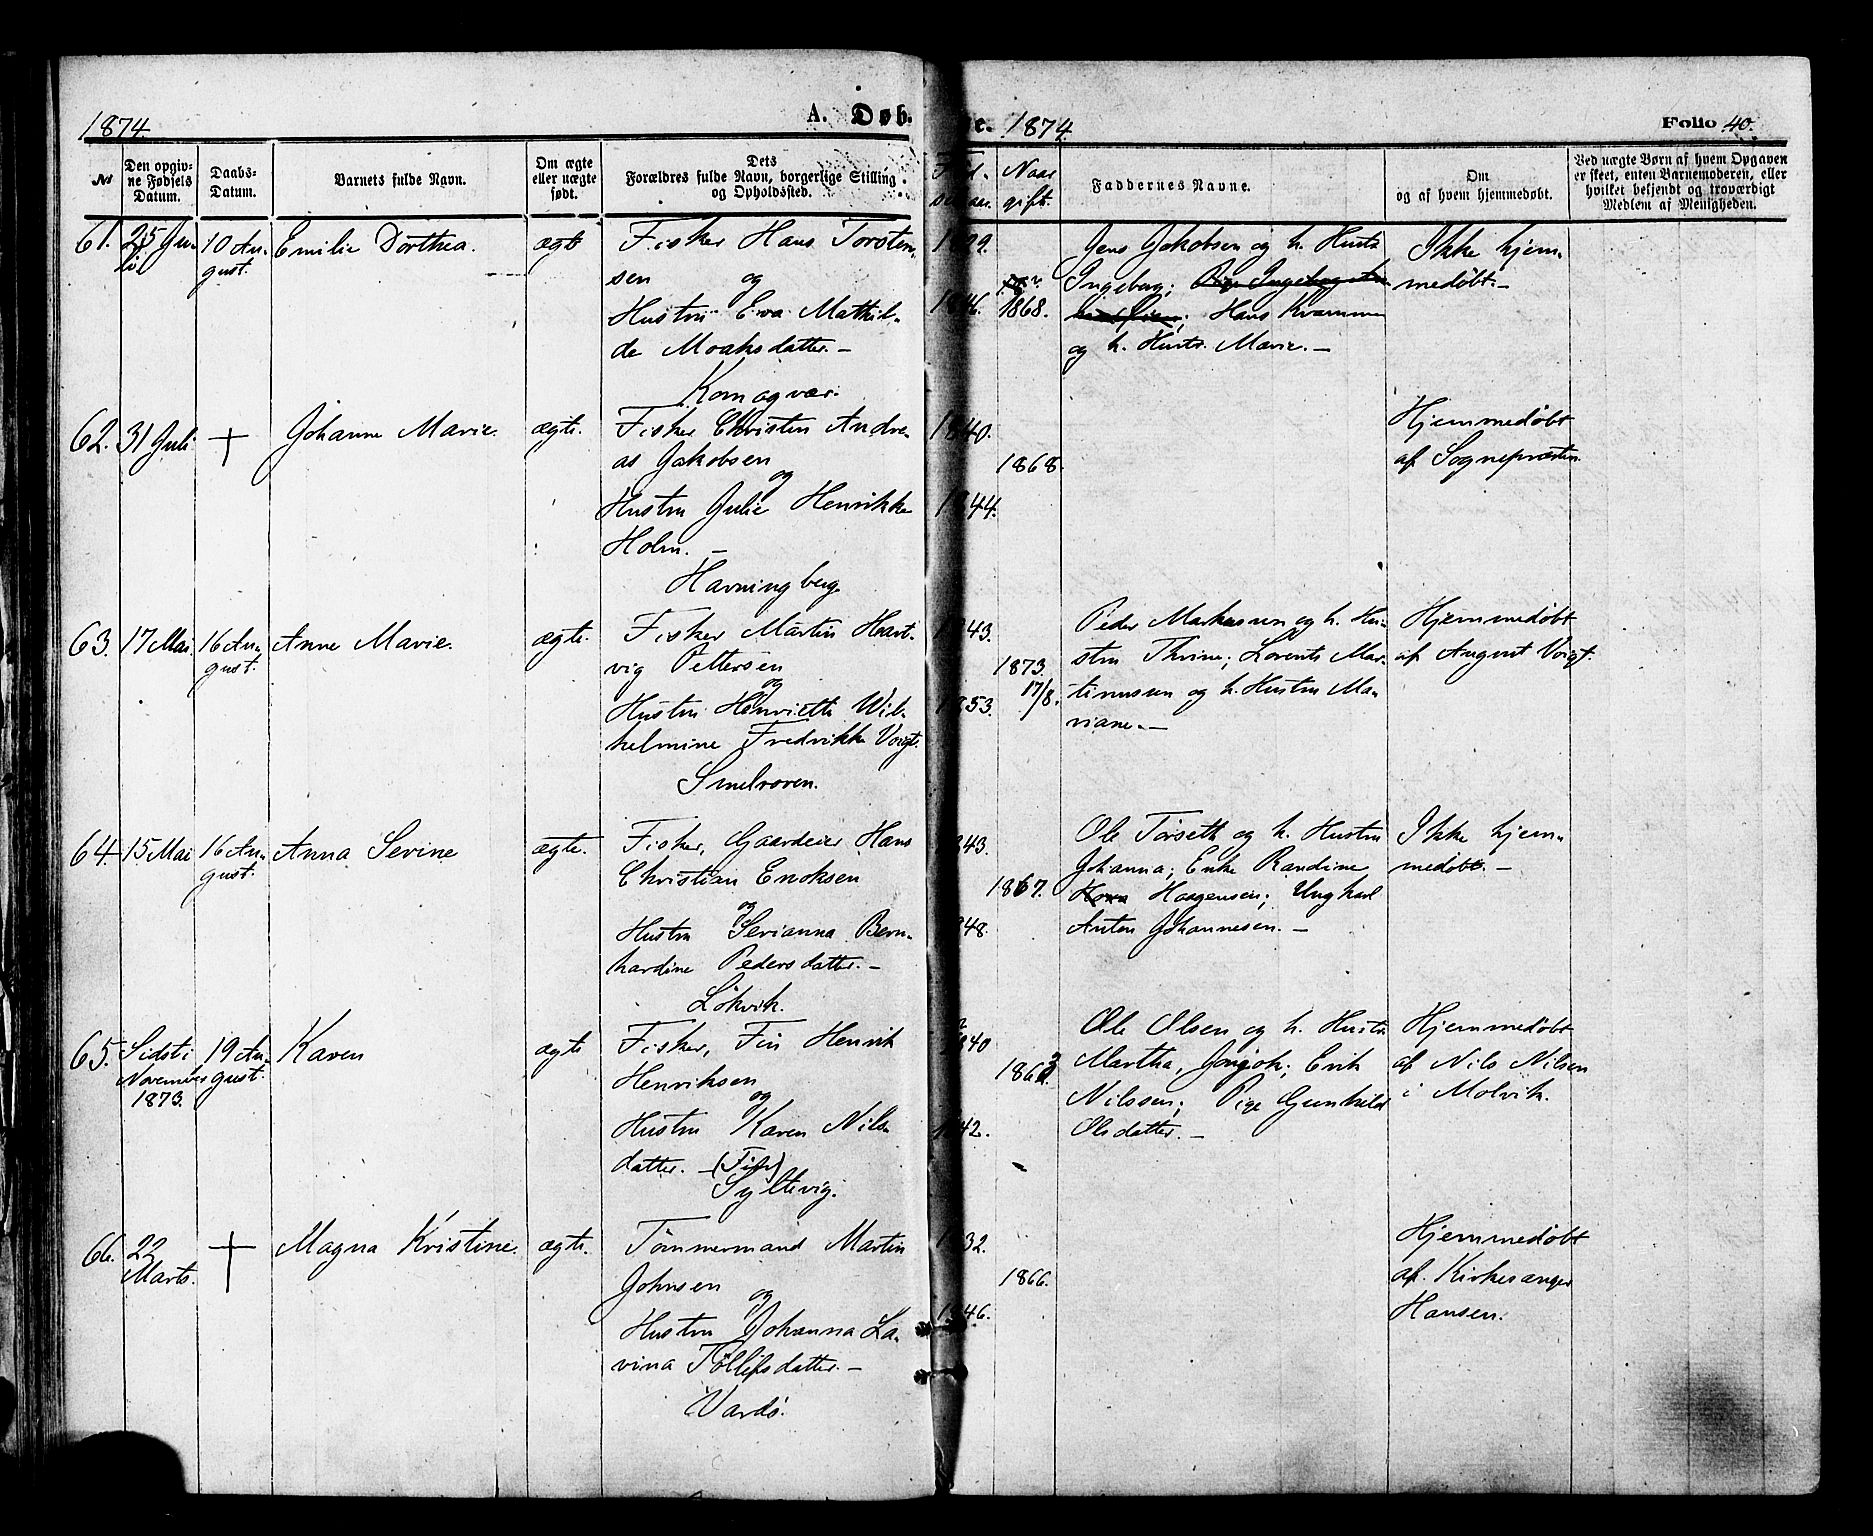 1874 A. Døb. e. 1874 Folio 40.
Nt
Den opgiv-
ne Fødsels
Datum.
Daabs-
Datum.
Barnets fulde Navn.
Om ægte
eller uægte
født.
Dets
Forældres fulde Navn, borgerlige Stilling
og Opholdssted.
Naar
gift.
Faddernes Navne.
Om
og af hvem hjemmedøbt.
Ved uægte Børn af hvem Opgaven
er skeet, enten Barnemoderen, eller
hvilket bekjendt og troværdigt
Medlem af Menigheden.
61.
25 Ju-
li
10 Au-
gust.
Emilie Dorthea.
ægte
Fisker Hans Torsten-
sen og
Hustru Eva Mathil-
de Moaksdatter. -
Komagvær.
1868.
Jens Jakobsen og h. Hustr
Ingeborg;
Hans Kvamme
og h. Hustr. Marie. -
Ikke hjem-
medøbt. -
62.
31 Juli
+
Johanne Marie.
ægte.
Fisker Christen Andre-
as Jakobsen
og
Hustru Julie Henrikke
Holm. -
Havningberg
1840.
1844.
1868.
Hjemmedøbt
af Sognepræsten.
63.
17 Mai
16 Au-
gust.
Anne Marie.
ægte.
Fisker Martin Hart-
vig Pettersen
og
Hustru Henriette Wil-
helmine Fredrikke Voigt.
Smelroren.
1843.
1853.
1873.
17/8.
Peder Markussen og h. Hu-
stru Thrine; Lorents Mar-
tinussen og h. Hustru Ma-
riane. -
Hjemmedøbt
af August Voigt.
64.
15 Mai
16 Au-
gust.
Anna Sevine
ægte.
Fisker, Gaardeier Hans
Christian Enoksen
og
Hustru Serianna Bern-
hardine Pedersdatter. -
Løkvik.
1843.
1848.
1867.
Ole Torseth og h. Hustru
Johanna; Enke Randine
Haagensen; Ungkarl
Anton Johannesen. -
Ikke hjem-
medøbt. -
65.
Sidst i
November
1873.
19 Au-
gust.
Karen
ægte
Fisker, Fin Henrik
Henriksen
og
Hustru Karen Nils-
datter. - (Fin)
Syltevig.
1840
1842.
1863
Ole Olsen og h. Hustr
Martha, Gonjok; Erik
Nilssen; Pige Gunhild
Olsdatter. -
Hjemmedøbt
af Nils Nilsen
i Molvik.
66.
22
Marts.
+
Magna Kristine.
ægte.
Tømmermand Martin
Johnsen
og
Hustru Johanna La-
vina Tollefsdatter. -
Vardø.
1832.
1846.
1866.
Hjemmedøbt
af Kirkesanger
Hansen.